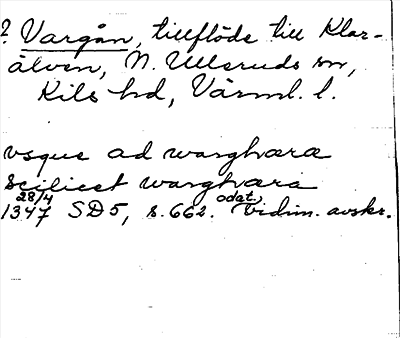 ? Vargån, tillflöde till Klar-
älven, N. Ulleruds sn,
Kils hd, Värml. l.
vsque ad warghæræ
sciliest warghæra
28/4 odat.
1347 SD 5, s. 662. Vidim. avskr.